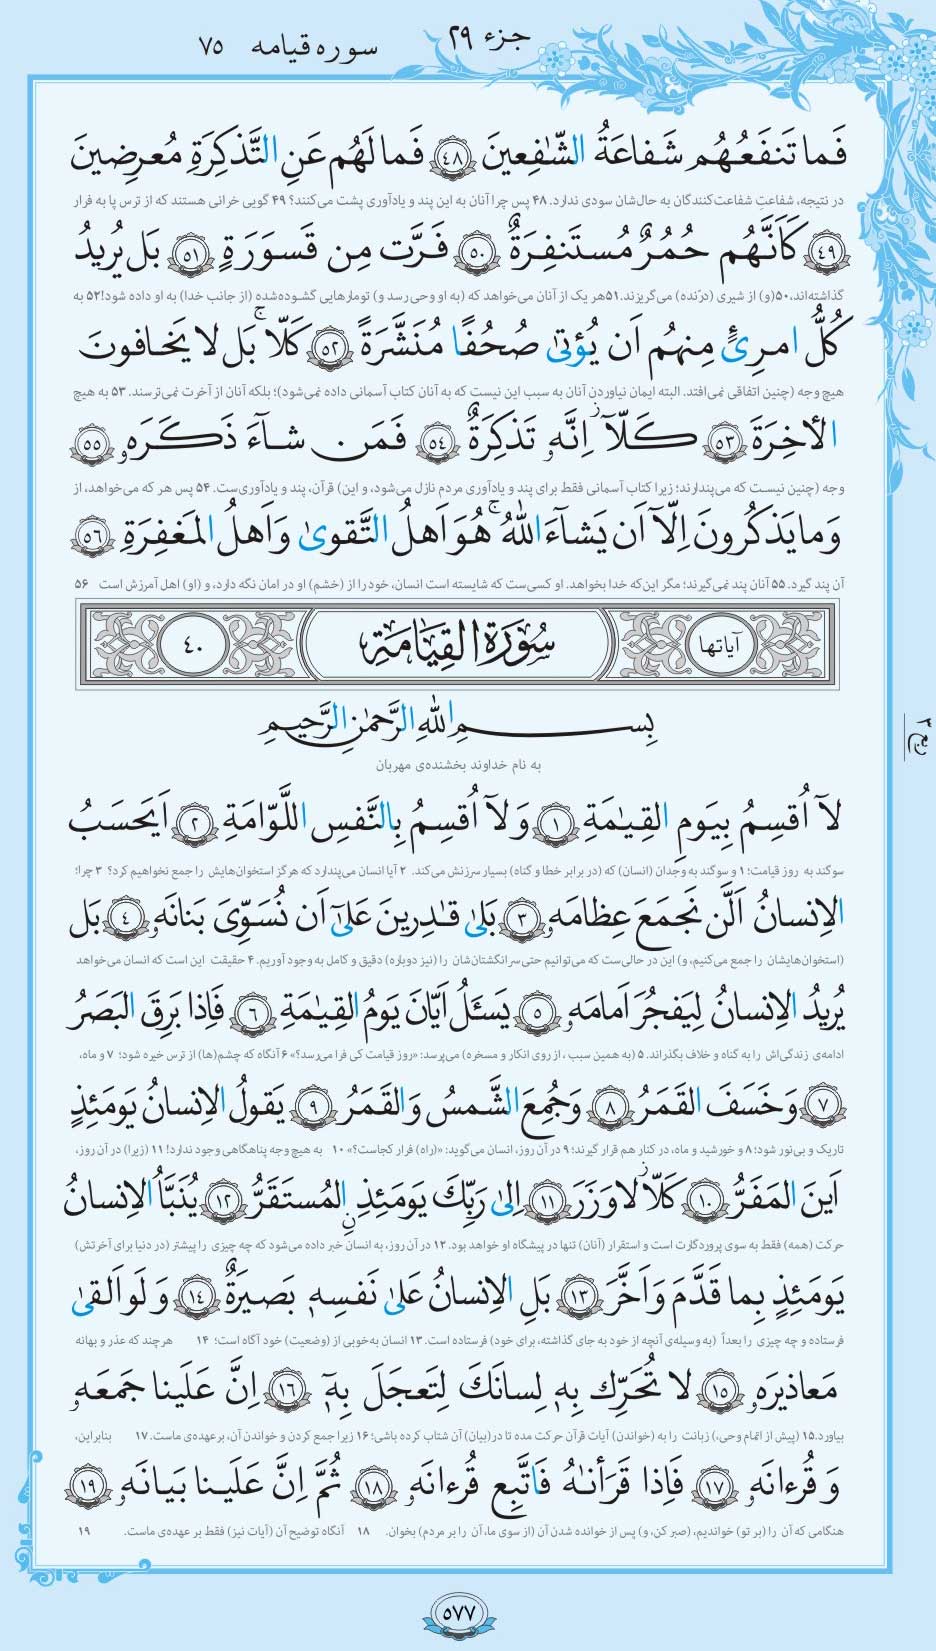 جزء ۲۹
سوره قیامه ۷۵
فَما تَنفَعُهُم شَفاعَةُ الشّٰفِعينَ ﴿٤٨﴾ فَما لَهُم عَنِ التَّذكِرَةِ مُعرِضينَ
در نتیجه، شفاعتِ شفاعت‌کنندگان به حال‌شان سودی ندارد. ۴۸ پس چرا آنان به این پند و یادآوری پشت می‌کنند؟ ۴۹ گویی خرانی هستند که از ترس پا به فرار
﴿٤٩﴾ كَاَنَّهُم حُمُرٌ مُستَنفِرَةٌ ﴿٥٠﴾ فَرَّت مِن قَسوَرَةٍ ﴿٥١﴾ بَل يُريدُ
گذاشته‌اند، ۵۰ (و) از شیری (درّنده) می‌گریزند. ۵۱ هر یک از آنان می‌خواهد که (به او وحی رسد و) تومارهایی گشوده‌شده (از جانب خدا) به او داده شود! ۵۲ به
كُلُّ امرِئٍ مِنهُم اَن يُؤتىٰ صُحُفًا مُنَشَّرَةً ﴿٥٢﴾ كَلّا ۚ بَل لا يَخافونَ
هیچ وجه (چنین اتفاقی نمی‌افتد. البته ایمان نیاوردن آنان به سبب این نیست که به آنان کتاب آسمانی داده نمی‌شود)؛ بلکه آنان از آخرت نمی‌ترسند. ۵۳ به هیچ
الأخِرَةَ ﴿٥٣﴾ كَلّاۤ اِنَّهٗ تَذكِرَةٌ ﴿٥٤﴾ فَمَن شاۤءَ ذَكَرَهٗ ﴿٥٥﴾
وجه (چنین نیست که می‌پندارند؛ زیرا کتاب آسمانی فقط برای پند و یادآوری مردم نازل می‌شود، و این) قرآن، پند و یادآوری‌ست. ۵۴ پس هر که می‌خواهد، از
وَ ما يَذكُرونَ اِلّاۤ اَن يَشاۤءَ اللّٰهُ ۚ هُوَ اَهلُ التَّقوىٰ وَ اَهلُ المَغفِرَةِ ﴿٥٦﴾
آن پند گیرد. ۵۵ آنان پند نمی‌گیرند؛ مگر این‌که خدا بخواهد. او کسی‌ست که شایسته است انسان، خود را از (خشم) او در امان نگه دارد، و (او) اهل آمرزش است ۵۶
آیاتها سُورَةُ القِيَامَةِ ٤٠
بِسـمِ اللّٰهِ الرَّحمٰنِ الرَّحيمِ
به نام خداوند بخشنده‌ی مهربان
لاۤ اُقسِمُ بِيَومِ القِيٰمَةِ ﴿١﴾ وَ لاۤ اُقسِمُ بِالنَّفسِ اللَّوّامَةِ ﴿٢﴾ اَيَحسَبُ
سوگند به روز قیامت؛ ۱ و سوگند به وجدان (انسان) که (در برابر خطا و گناه) بسیار سرزنش می‌کند. ۲ آیا انسان می‌پندارد که هرگز استخوان‌هایش را جمع نخواهیم کرد؟ ۳ چرا؛
الاِنسانُ اَلَّن نَجمَعَ عِظامَهٗ ﴿٣﴾ بَلىٰ قٰدِرينَ عَلىٰۤ اَن نُسَوِّىَ بَنانَهٗ ﴿٤﴾ بَل
(استخوان‌هایشان را جمع می‌کنیم، و) این در حالی‌ست که می‌توانیم حتی سرانگشتان‌شان را (نیز دوباره) دقیق و کامل به وجود آوریم. ۴ حقیقت این است که انسان می‌خواهد
يُريدُ الاِنسانُ لِيَفجُرَ اَمامَهٗ ﴿٥﴾ يَسـَٔلُ اَيّانَ يَومُ القِيٰمَةِ ﴿٦﴾ فَاِذا بَرِقَ البَصَرُ
ادامه‌ی زندگی‌اش را به گناه و خلاف بگذراند. ۵ (به همین سبب، از روی انکار و مسخره) می‌پرسد: «روز قیامت کی فرا می‌رسد؟» ۶ آنگاه که چشم(ها) از ترس خیره شود؛ ۷ و ماه،
﴿٧﴾ وَ خَسَفَ القَمَرُ ﴿٨﴾ وَ جُمِعَ الشَّمسُ وَ القَمَرُ ﴿٩﴾ يَقولُ الاِنسانُ يَومَئِذٍ
تاریک و بی‌نور شود؛ ۸ و خورشید و ماه، در کنار هم قرار گیرند؛ ۹ در آن روز، انسان می‌گوید: «(راه) فرار کجاست؟» ۱۰ به هیچ وجه پناهگاهی وجود ندارد! ۱۱ (زیرا) در آن روز،
اَينَ المَفَرُّ ﴿١٠﴾ كَلّا لا وَزَرَ ﴿١١﴾ اِلىٰ رَبِّكَ يَومَئِذٍ المُستَقَرُّ ﴿١٢﴾ يُنَبَّأُ الاِنسانُ
حرکت (همه) فقط به سوی پروردگارت است و استقرار (آنان) تنها در پیشگاه او خواهد بود. ۱۲ در آن روز، به انسان خبر داده می‌شود که چه چیزی را پیشتر (در دنیا برای آخرتش)
يَومَئِذٍ بِما قَدَّمَ وَ اَخَّرَ ﴿١٣﴾ بَلِ الاِنسانُ عَلىٰ نَفسِهٖ بَصيرَةٌ ﴿١٤﴾ وَ لَو اَلقىٰ
فرستاده و چه چیزی را بعداً (به وسیله‌ی آنچه از خود به جای گذاشته، برای خود) فرستاده است. ۱۳ انسان به‌خوبی از (وضعیت) خود آگاه است؛ ۱۴ هرچند که عذر و بهانه
مَعاذيرَهٗ ﴿١٥﴾ لا تُحَرِّك بِهٖ لِسانَكَ لِتَعجَلَ بِهٖۤ ﴿١٦﴾ اِنَّ عَلَينا جَمعَهٗ
بیاورد. ۱۵ (پیش از اتمام وحی،) زبانت را به (خواندن) آیات قرآن حرکت مده تا در (بیان) آن شتاب کرده باشی؛ ۱۶ زیرا جمع کردن و خواندن آن، بر عهده‌ی ماست. ۱۷ بنابراین،
وَ قُرءانَهٗ ﴿١٧﴾ فَاِذا قَرَأنٰهُ فَاتَّبِع قُرءانَهٗ ﴿١٨﴾ ثُمَّ اِنَّ عَلَينا بَيانَهٗ ﴿١٩﴾
هنگامی که آن را (بر تو) خواندیم، (صبر کن، و) پس از خوانده شدن آن (از سوی ما، آن را بر مردم) بخوان. ۱۸ آنگاه توضیح آن (آیات نیز) فقط بر عهده‌ی ماست. ۱۹
٥٧٧